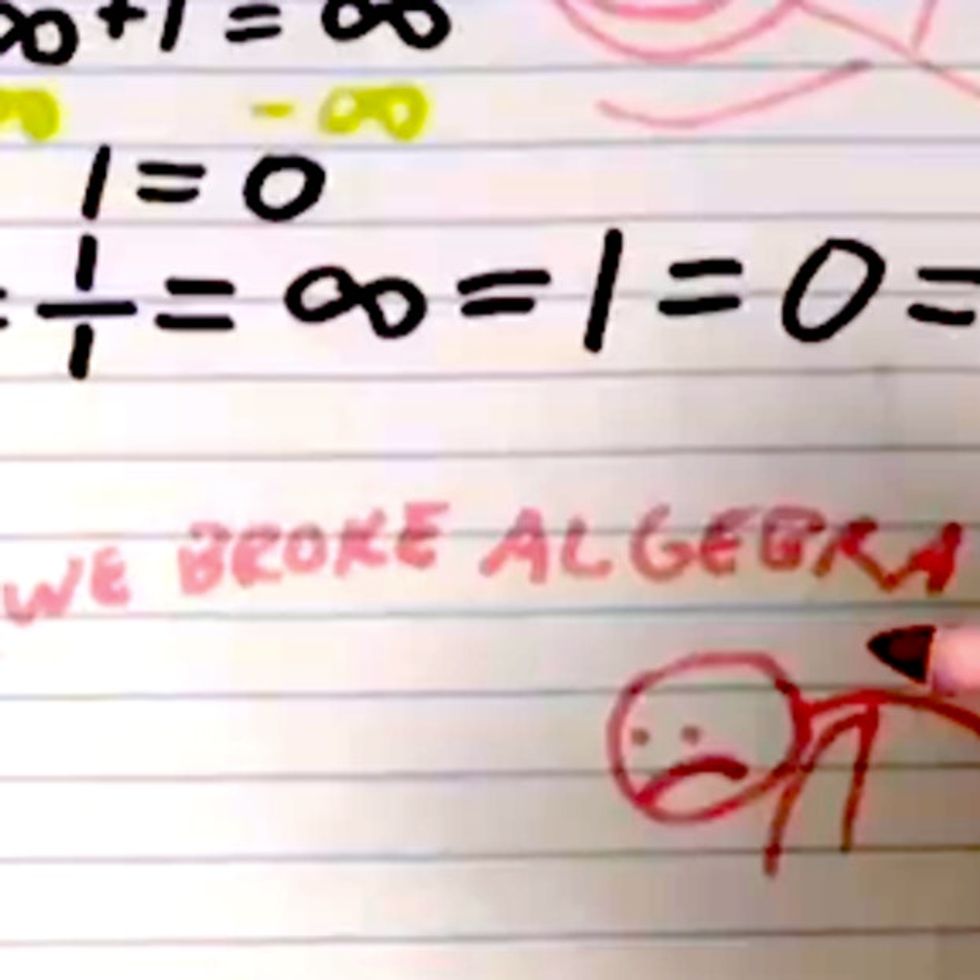 ∞+1 = ∞
∞ - ∞
1 = 0
= 1/1 = ∞ = 1 = 0 =
WE BROKE ALGEBRA